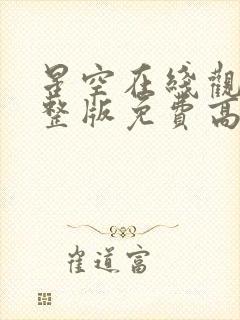 星空在綫觀
整版免費高
雀道富